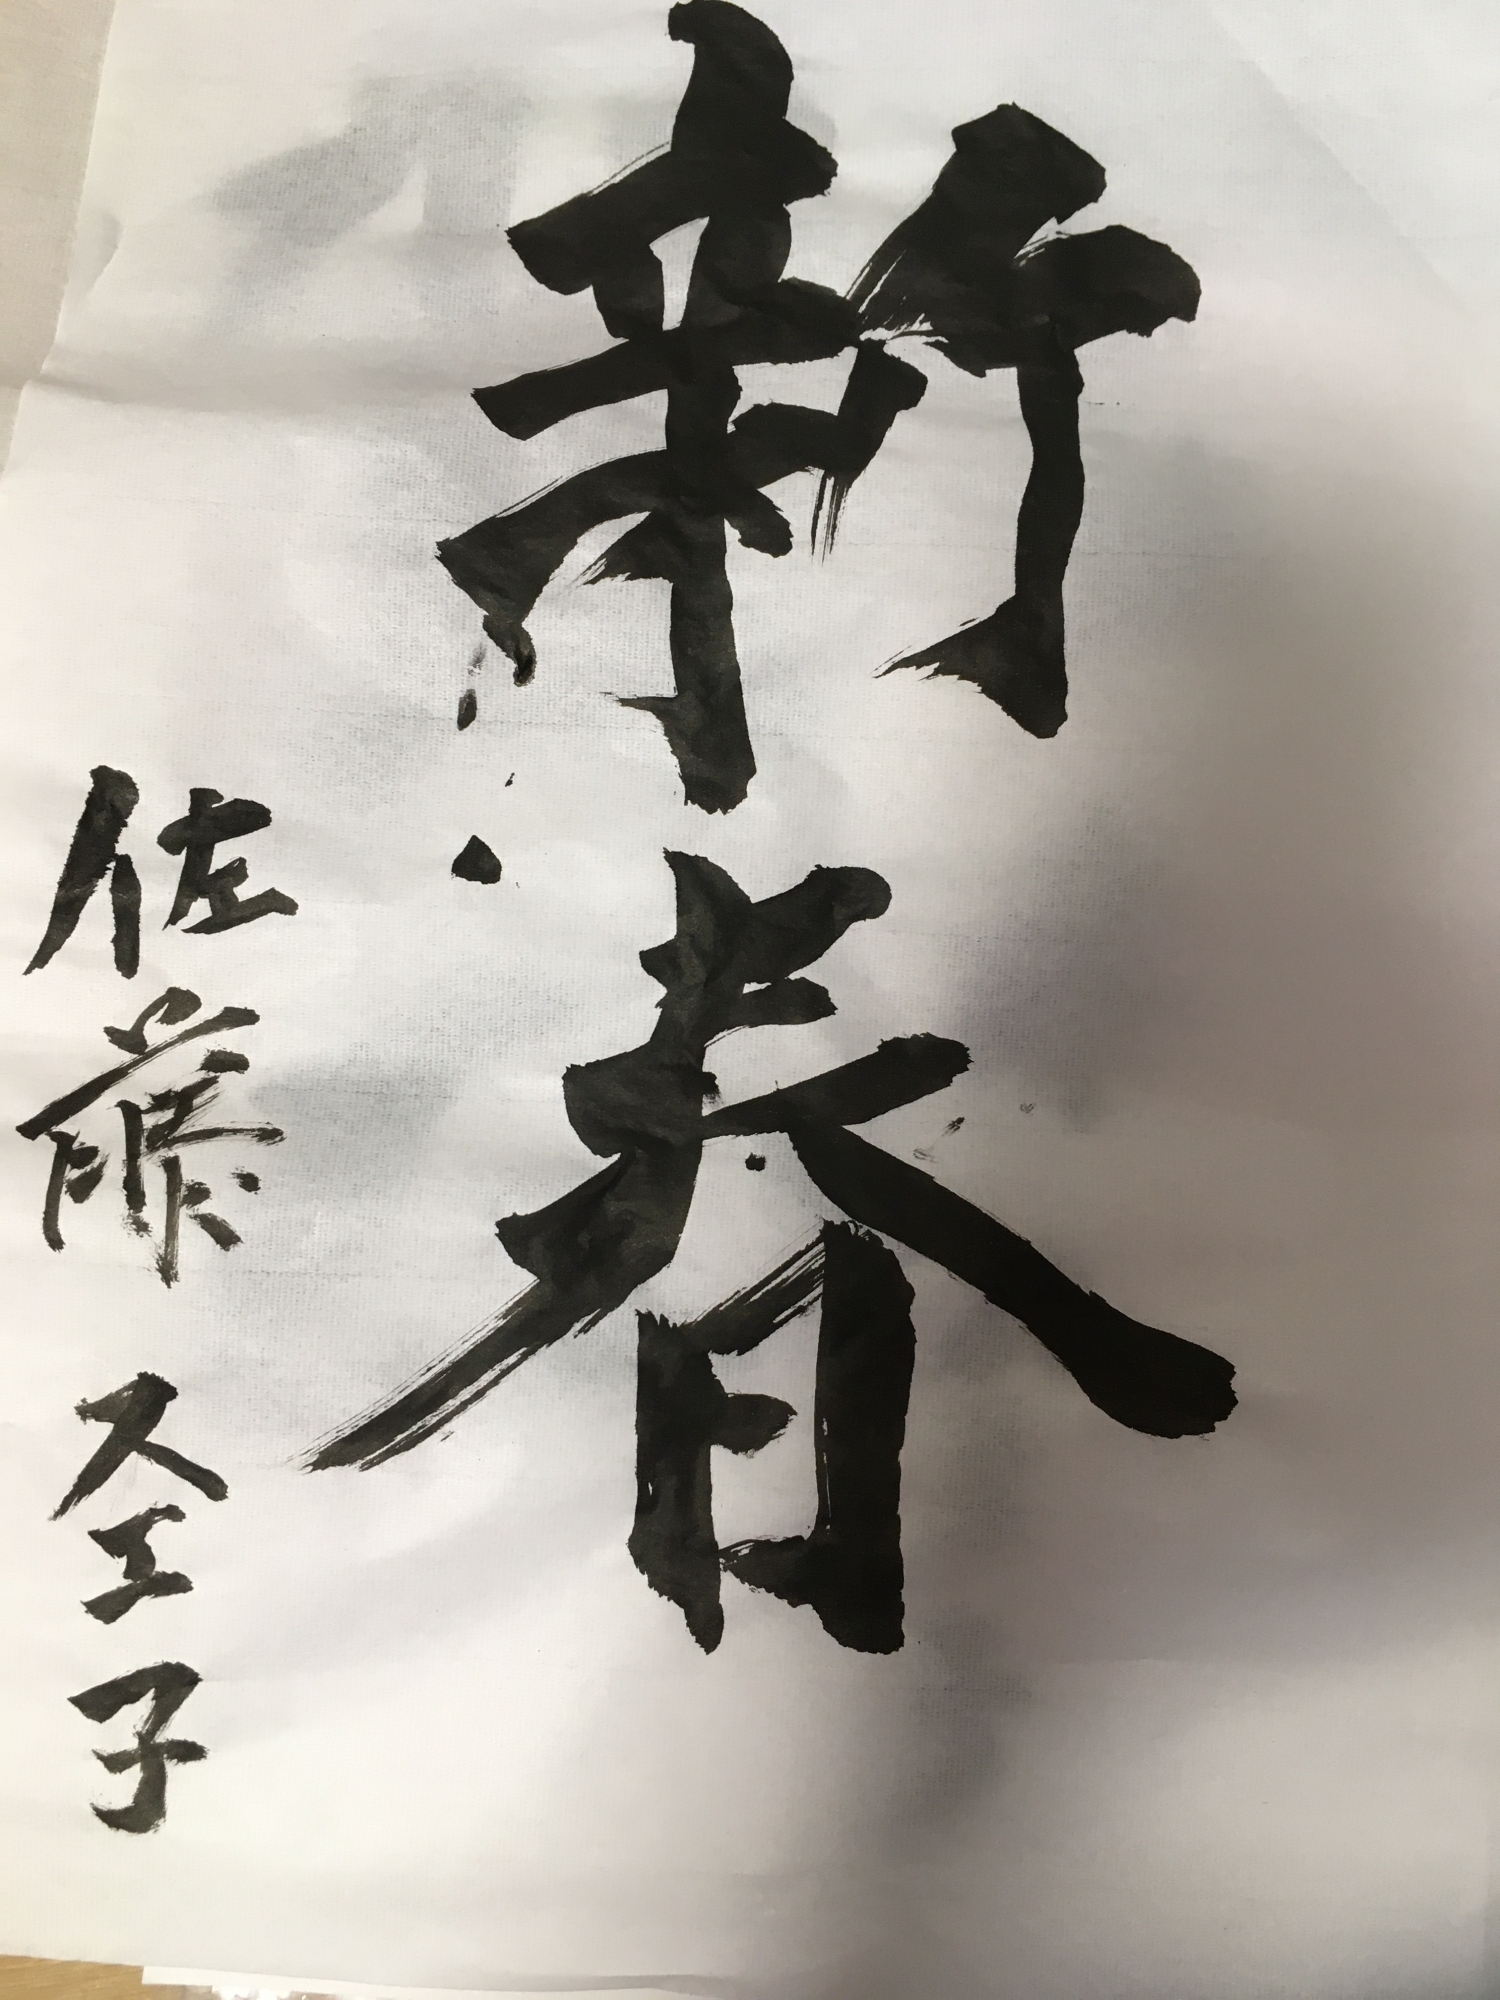 新春
佐藤 圣子